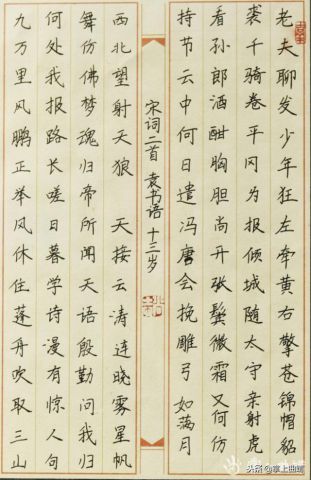 老夫聊发少年狂左牵黄右擎苍锦帽貂
裘千骑卷平冈为报倾城随太守亲射虎
看孙郎酒酣胸胆尚开张鬓微霜又何仿
持节云中何日遣冯唐会挽雕弓如满月
宋词二首 袁书语 十三岁
西北望射天狼 天接云涛连晓雾星帆
舞仿佛梦魂归帝所闻天语殷勤问我归
何处我报路长嗟日暮学诗漫有惊人句
九万里风鹏正举风休住蓬舟吹取三山
头条@掌上曲靖